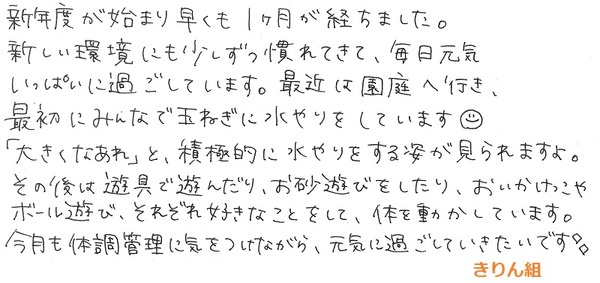 新年度が始まり早くも1ヶ月が経ちました。
新しい環境にも少しずつ慣れてきて、毎日元気
いっぱいに過ごしています。最近は園庭へ行き、
最初にみんなで玉ねぎに水やりをしています☺
「大きくなあれ」と、積極的に水やりをする姿が見られますよ。
その後は遊具で遊んだり、お砂遊びをしたり、おいかけっこや
ボール遊び、それぞれ好きなことをして、体を動かしています。
今月も体調管理に気をつけながら、元気に過ごしていきたいです
きりん組